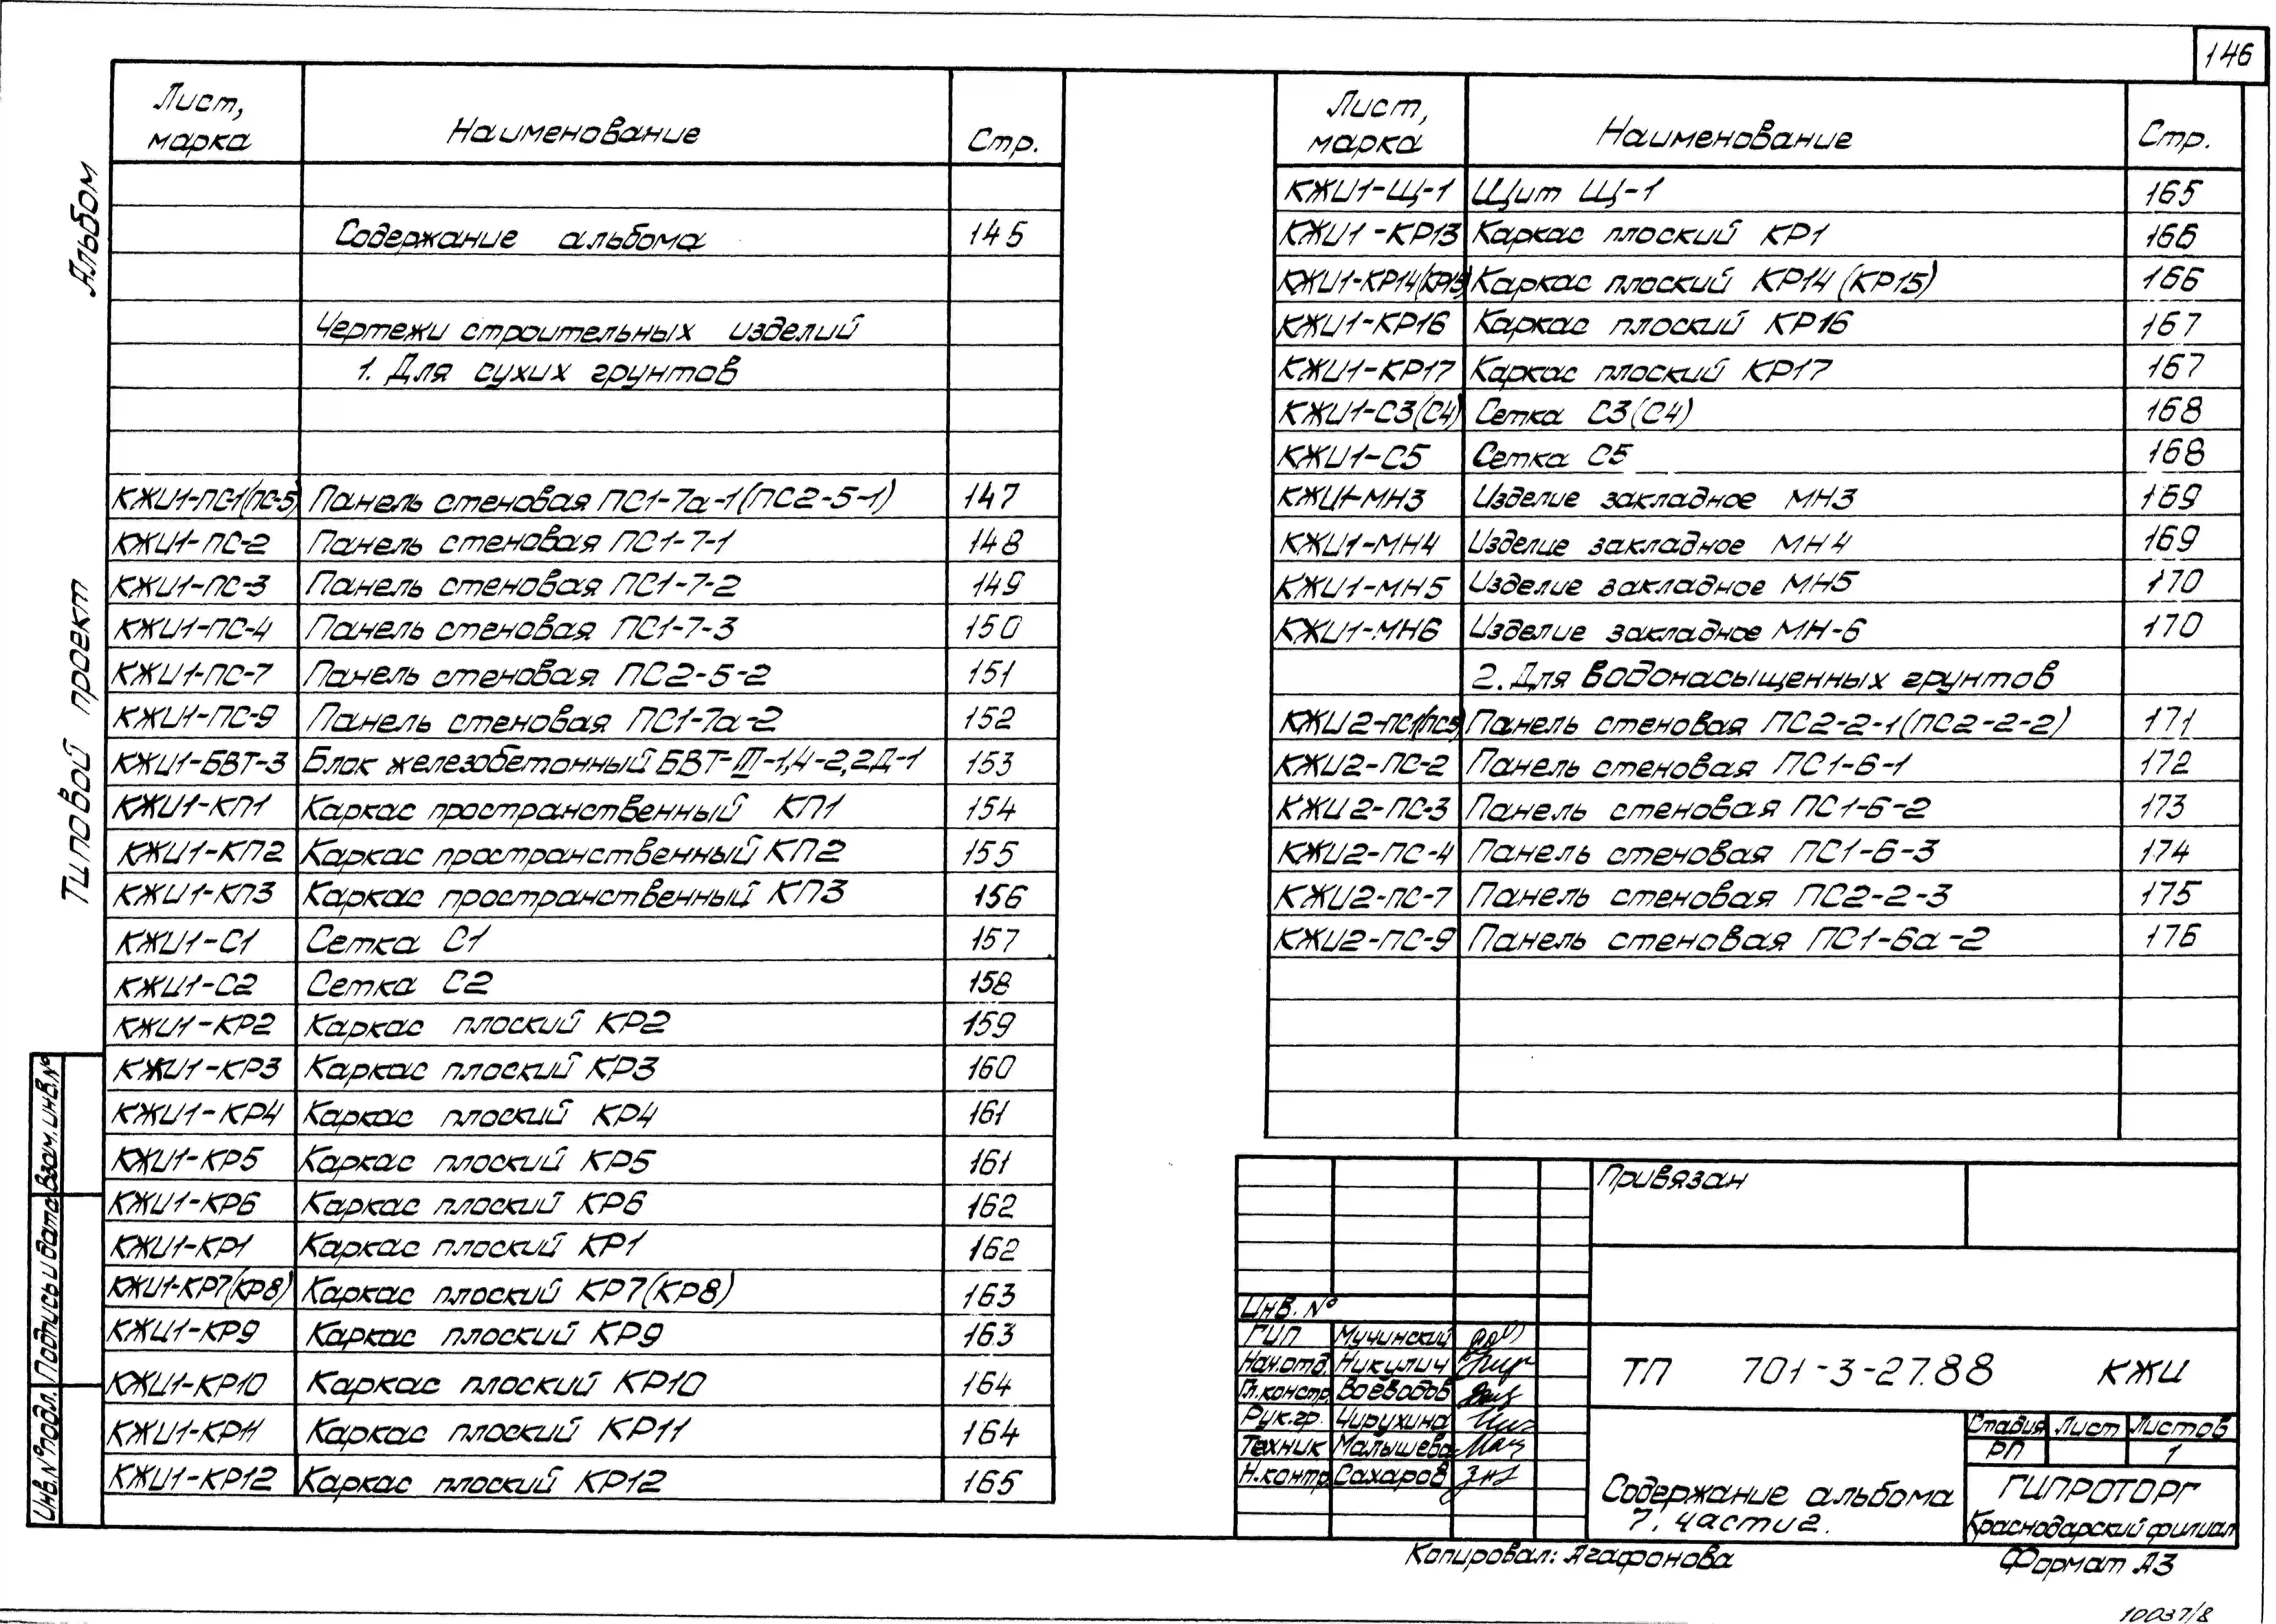 146
Альбом
Типовой проект
Взам. инв. №
Подпись и дата
Инв. № подл.
Лист, марка Наименование Стр.
Содержание альбома 145
Чертежи строительных изделий
1. Для сухих грунтов
КЖИ1-ПС1(ПС-5) Панель стеновая ПС1-7а-1(ПС2-5-1) 147
КЖИ1-ПС-2 Панель стеновая ПС1-7-1 148
КЖИ1-ПС-3 Панель стеновая ПС1-7-2 149
КЖИ1-ПС-4 Панель стеновая ПС1-7-3 150
КЖИ1-ПС-7 Панель стеновая ПС2-5-2 151
КЖИ1-ПС-9 Панель стеновая ПС1-7а-2 152
КЖИ1-БВТ-3 Блок железобетонный БВТ-III-1,4-2,2Д-1 153
КЖИ1-КП1 Каркас пространственный КП1 154
КЖИ1-КП2 Каркас пространственный КП2 155
КЖИ1-КП3 Каркас пространственный КП3 156
КЖИ1-С1 Сетка С1 157
КЖИ1-С2 Сетка С2 158
КЖИ1-КР2 Каркас плоский КР2 159
КЖИ1-КР3 Каркас плоский КР3 160
КЖИ1-КР4 Каркас плоский КР4 161
КЖИ1-КР5 Каркас плоский КР5 161
КЖИ1-КР6 Каркас плоский КР6 162
КЖИ1-КР1 Каркас плоский КР1 162
КЖИ1-КР7(КР8) Каркас плоский КР7(КР8) 163
КЖИ1-КР9 Каркас плоский КР9 163
КЖИ1-КР10 Каркас плоский КР10 164
КЖИ1-КР11 Каркас плоский КР11 164
КЖИ1-КР12 Каркас плоский КР12 165
Лист, марка Наименование Стр.
КЖИ1-Щ-1 Щит Щ-1 165
КЖИ1-КР13 Каркас плоский КР1 166
КЖИ1-КР14(КР15) Каркас плоский КР14 (КР15) 166
КЖИ1-КР16 Каркас плоский КР16 167
КЖИ1-КР17 Каркас плоский КР17 167
КЖИ1-С3(С4) Сетка С3(С4) 168
КЖИ1-С5 Сетка С5 168
КЖИ1-МН3 Изделие закладное МН3 169
КЖИ1-МН4 Изделие закладное МН4 169
КЖИ1-МН5 Изделие закладное МН5 170
КЖИ1-МН6 Изделие закладное МН-6 170
2. Для водонасыщенных грунтов
КЖИ2-ПС1(ПС5) Панель стеновая ПС2-2-1(ПС2-2-2) 171
КЖИ2-ПС-2 Панель стеновая ПС1-6-1 172
КЖИ2-ПС-3 Панель стеновая ПС1-6-2 173
КЖИ2-ПС-4 Панель стеновая ПС1-6-3 174
КЖИ2-ПС-7 Панель стеновая ПС2-2-3 175
КЖИ2-ПС-9 Панель стеновая ПС1-6а-2 176
Привязан
Инв. №
ГИП Мучинский
Нач.отд. Никулич
Гл.констр. Воеводов
Рук.гр. Чирухина
Техник Малышева
Н.контр. Сахаров
ТП 701-3-27.88 КЖИ
Содержание альбома
7. части 2.
Стадия Лист Листов
РП 1
ГИПРОТОРГ
Краснодарский филиал
Копировал: Агафонова
Формат А3
10037/8